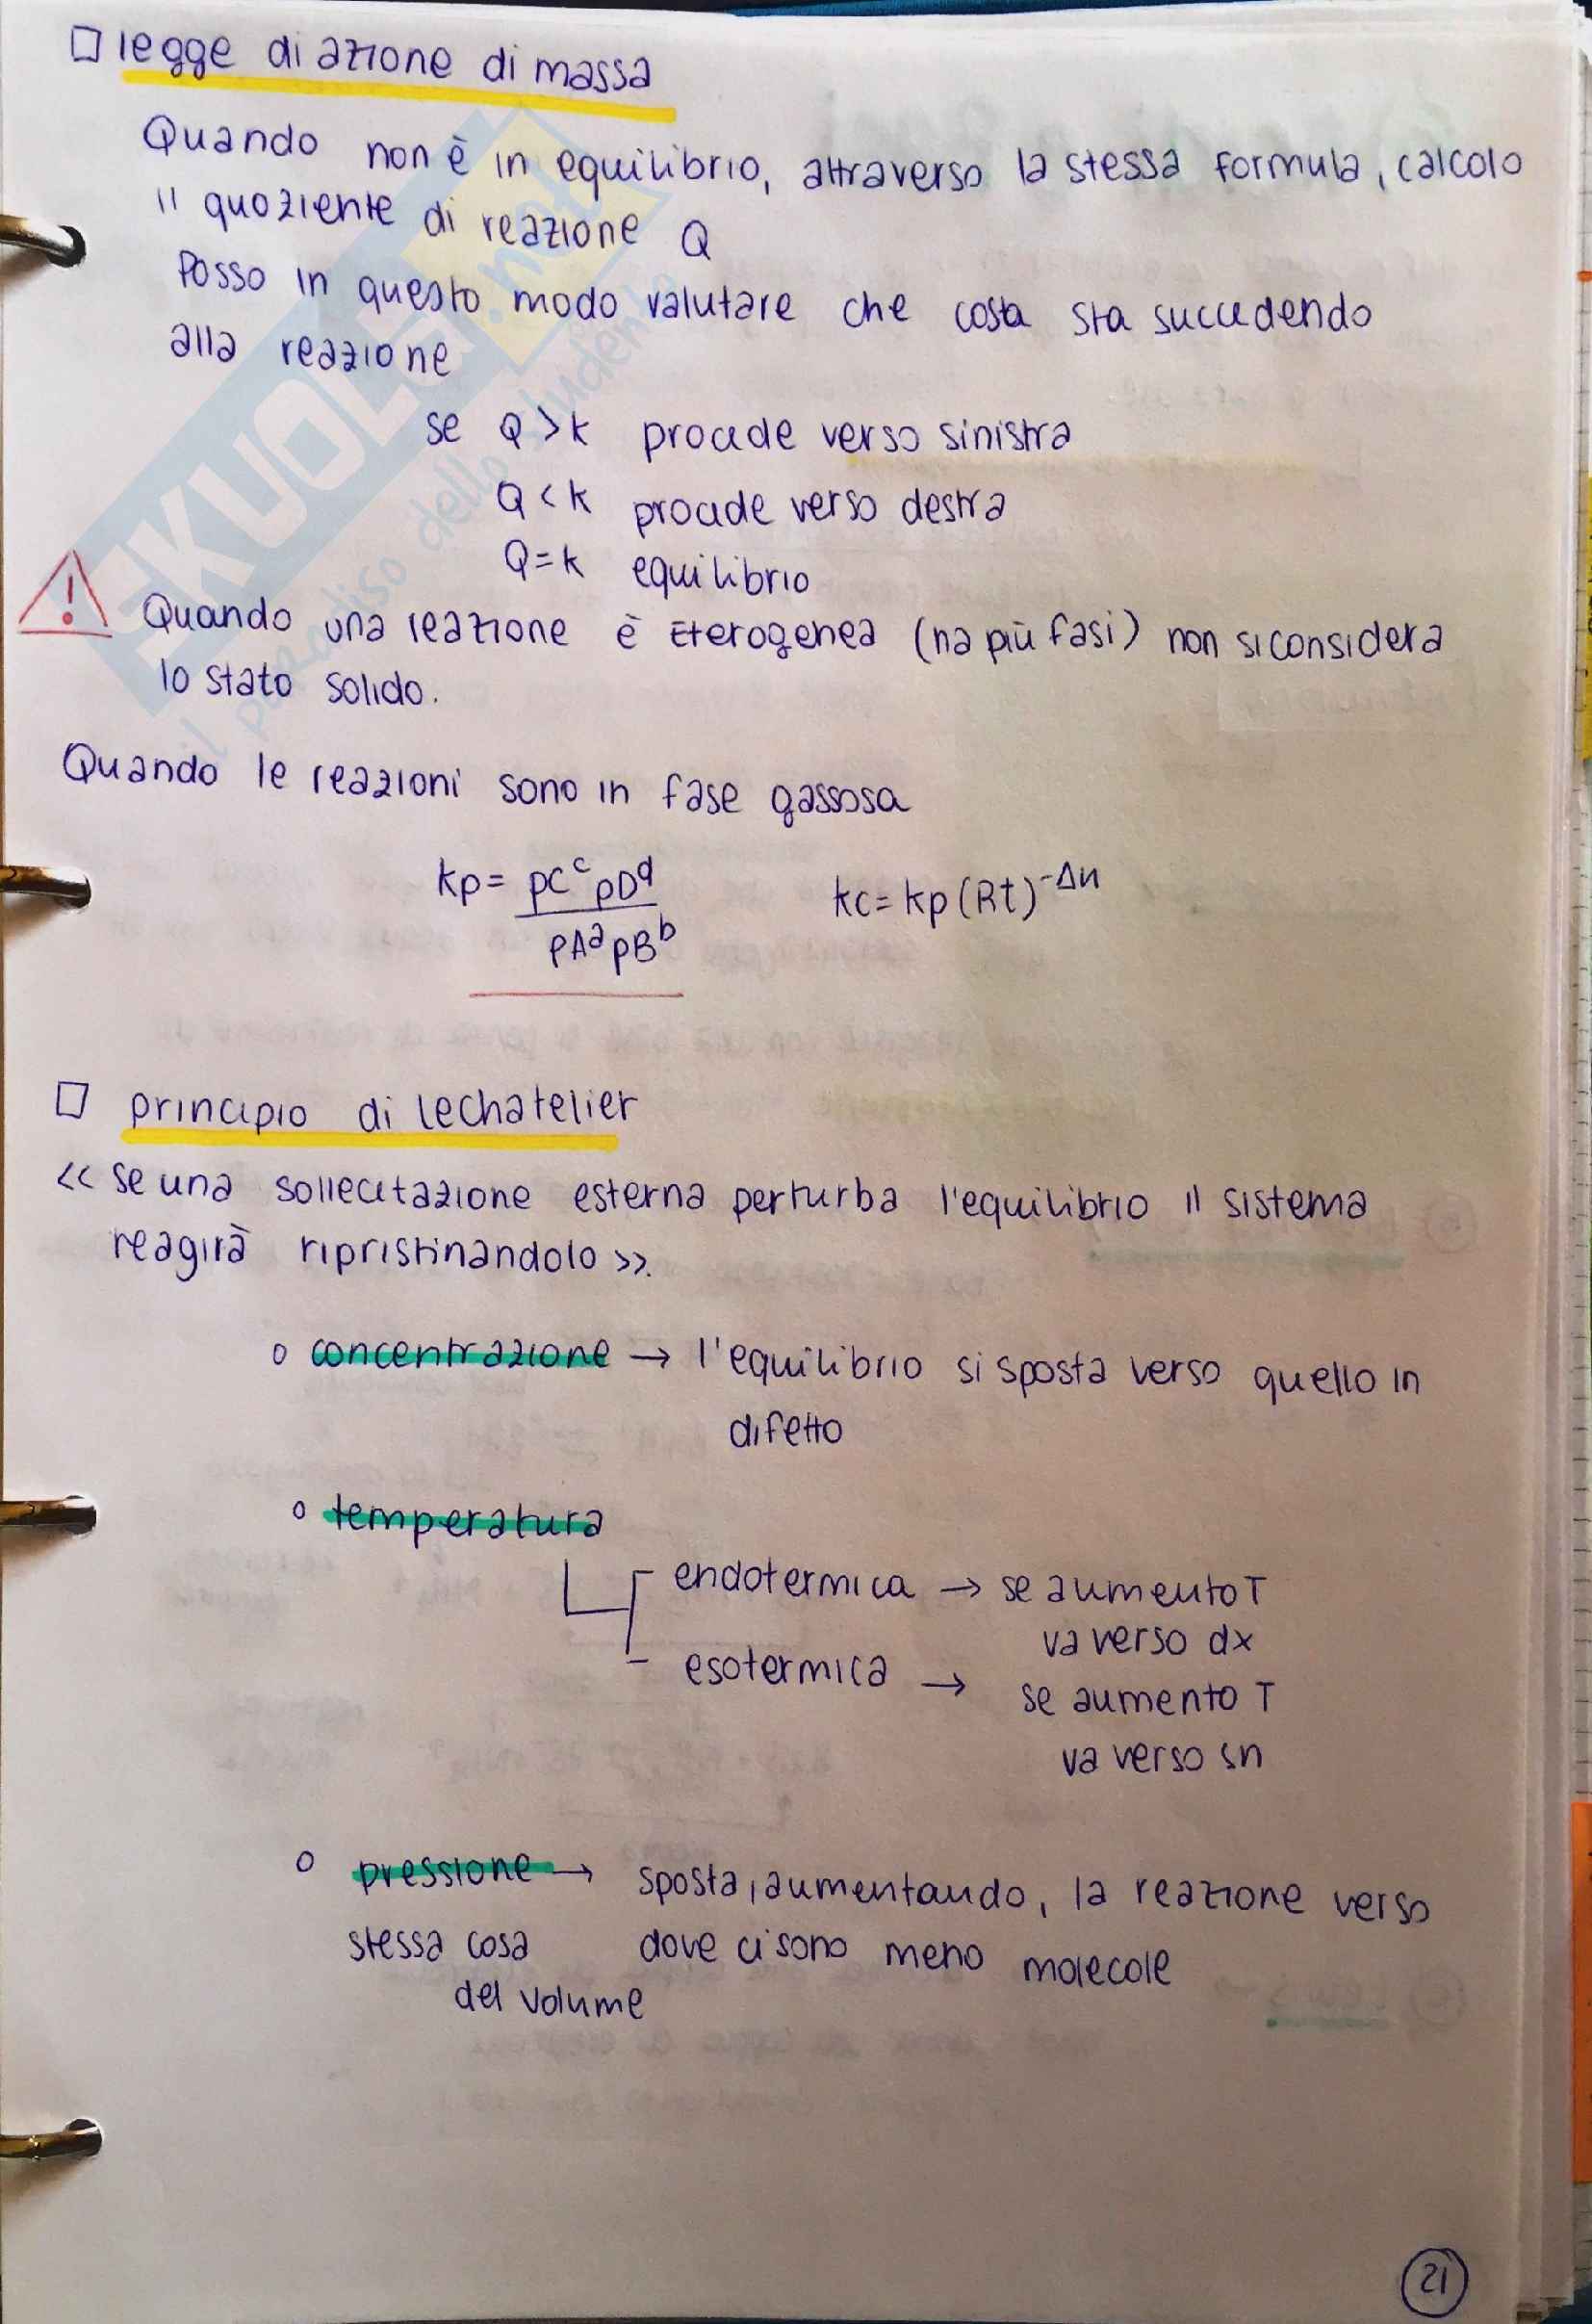 □ legge di azione di massa
Quando non è in equilibrio, attraverso la stessa formula, calcolo
il quoziente di reazione Q
Posso in questo modo valutare che cosa sta succedendo
alla reazione
se Q > k procede verso sinistra
Q < k procede verso destra
Q = k equilibrio
! Quando una reazione è Eterogenea (ha più fasi) non si considera
lo stato solido.
Quando le reazioni sono in fase gassosa
kp = pC^c pD^d / pA^a pB^b kc = kp (Rt)^-Δn
□ principio di lechatelier
<< se una sollecitazione esterna perturba l'equilibrio il sistema
reagirà ripristinandolo >>.
o concentrazione → l'equilibrio si sposta verso quello in
difetto
o temperatura
endotermica → se aumento T
va verso dx
esotermica → se aumento T
va verso sn
o pressione → sposta, aumentando, la reazione verso
stessa cosa dove ci sono meno molecole
del volume
21
SKUOLA.net
il paradiso dello studente